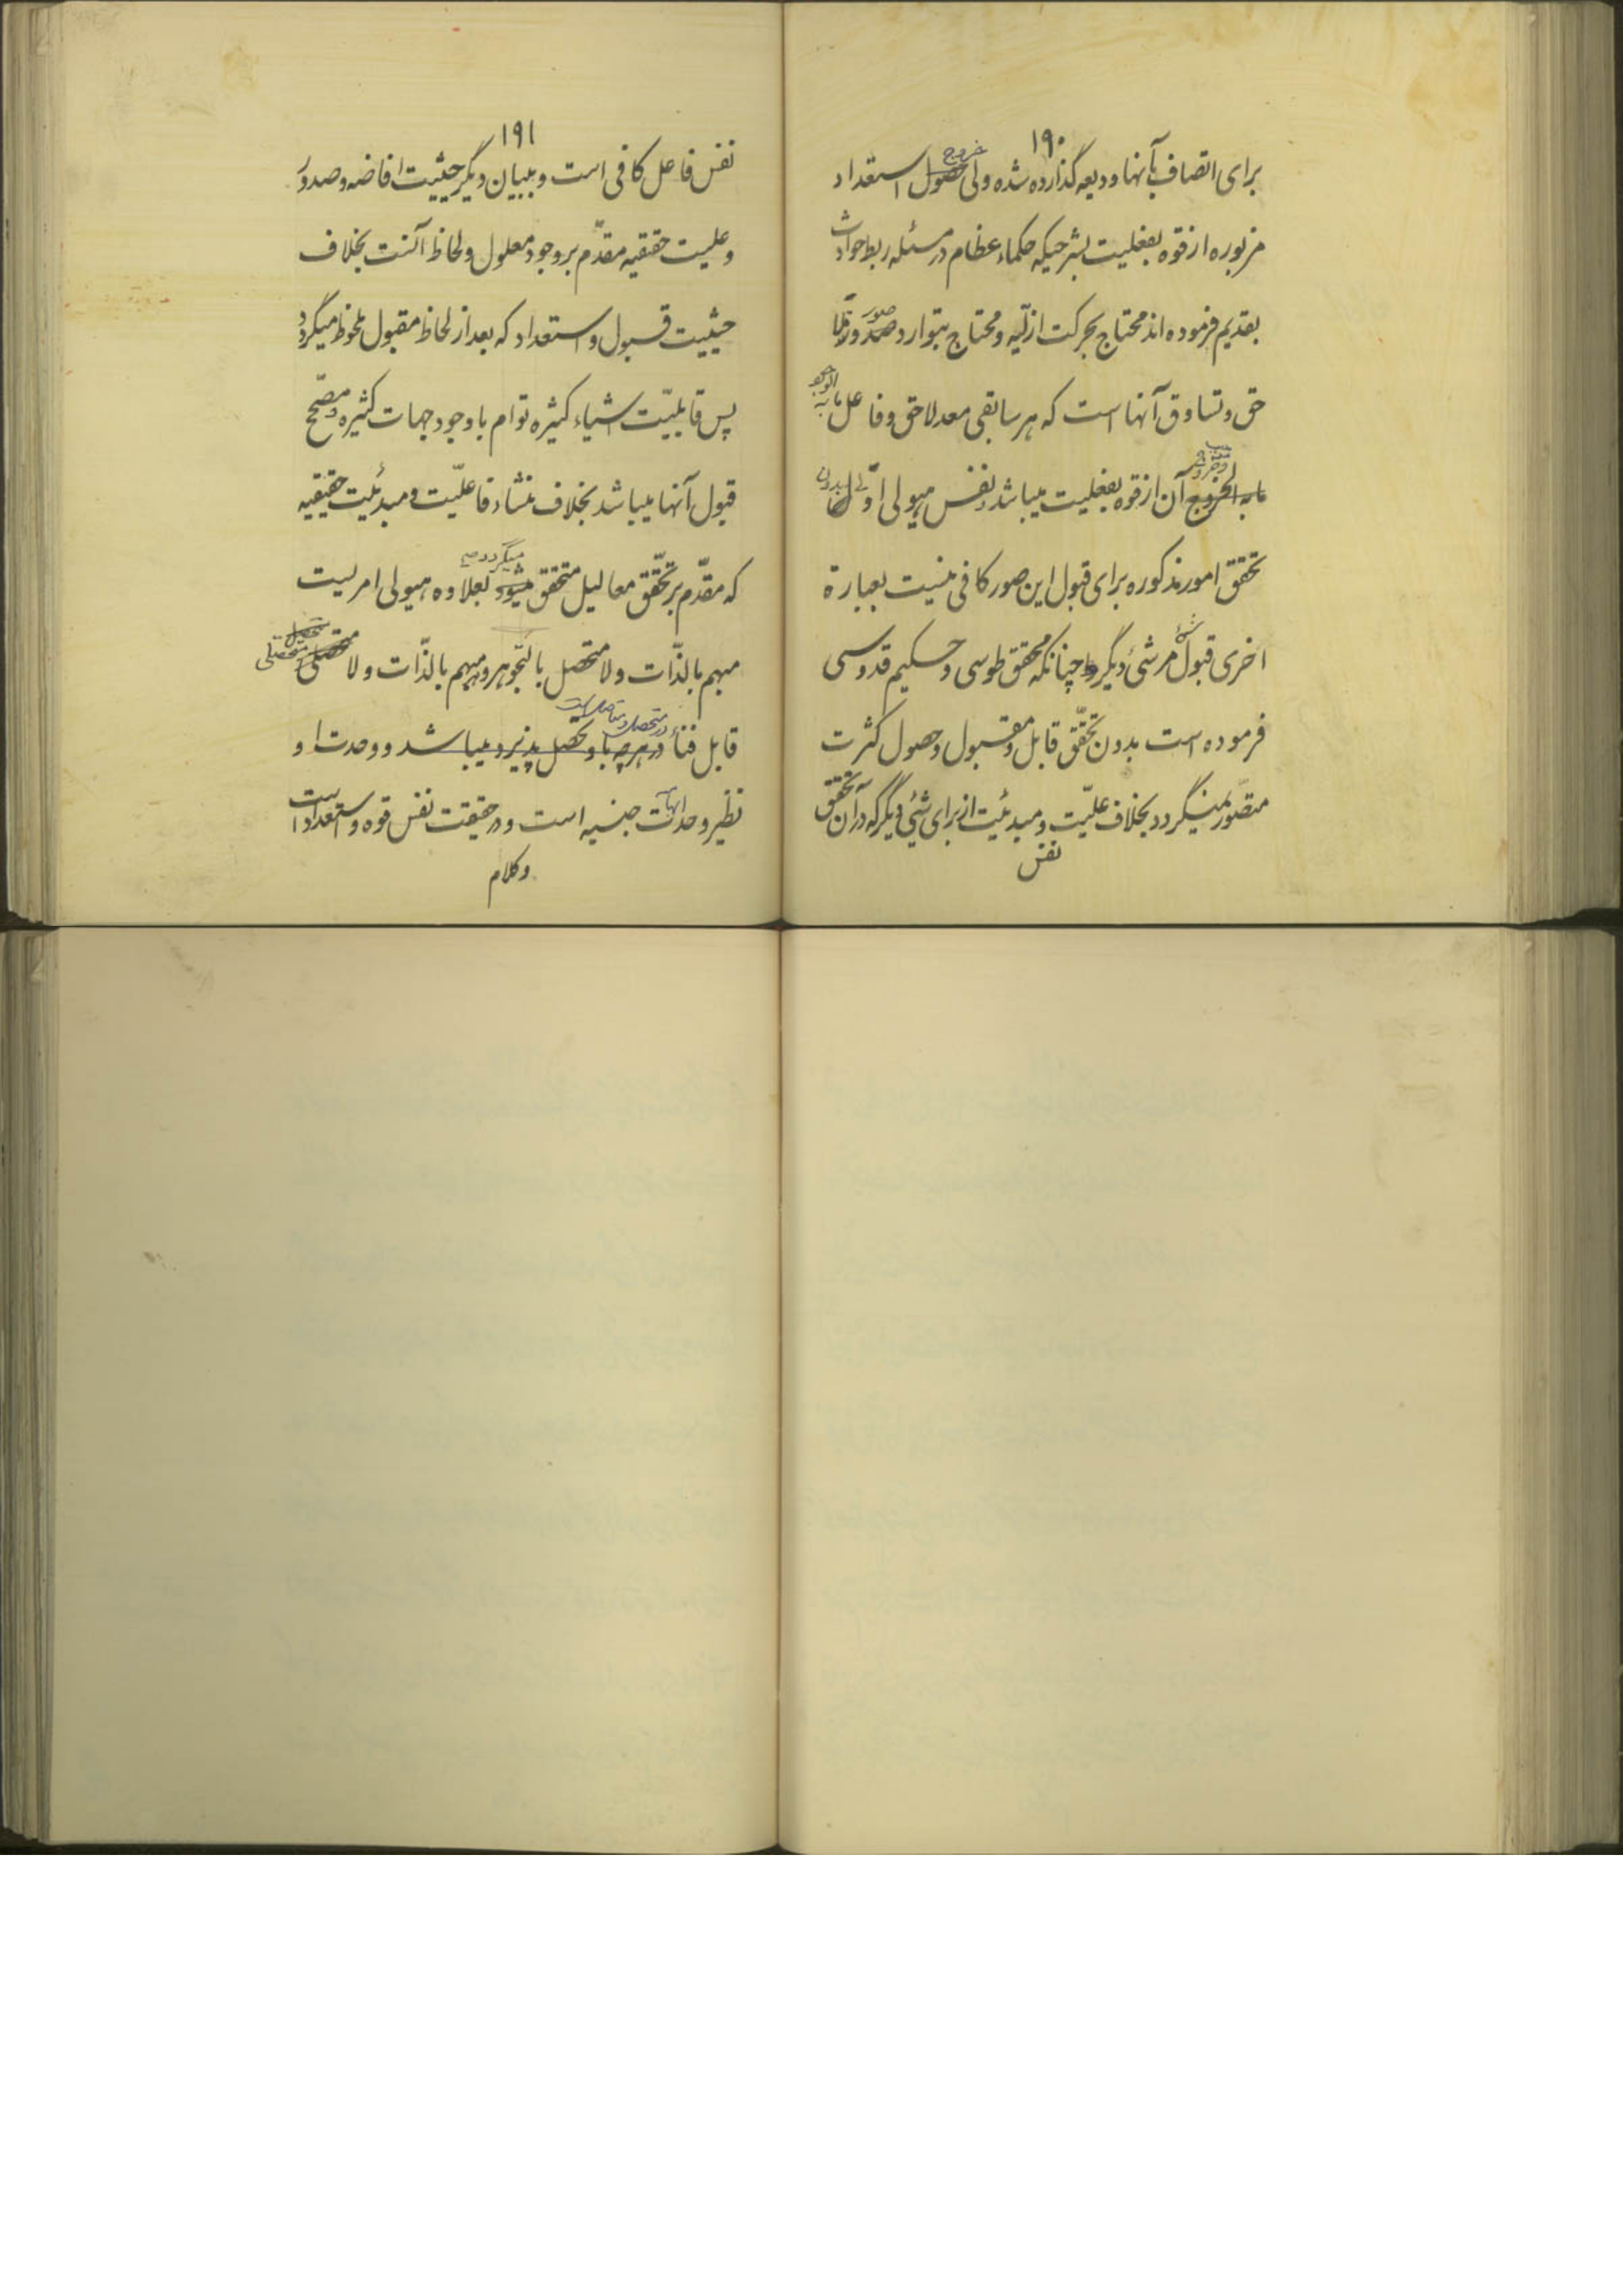 ۱۹۰
برای اتصاف بآنها ودیعه گذارده شده ولی خروج استعداد
مزبوره از قوه بفعلیت بشرحیکه حکماء عظام در مسئله ربط حوادث
بقدیم فرموده اند محتاج بحرکت ازلیّه و محتاج بتوارد صور
حق و تساوق آنها است که هر سابقی معد لاحق و فاعل مابه الوجود
آن از قوه بفعلیت میباشد و نفس هیولی اولی بدون
تحقق امور مذکوره برای قبول این صور کافی نیست بعبارة
اخری قبول شئ مر شئ دیگر را چنانکه محقق طوسی و حکیم قدوسی
فرموده است بدون تحقّق قابل و مقبول و حصول کثرت
متصّور نمیگردد بخلاف علیّت و مبدئیت از برای شیئ دیگر که در آن تحقق
نفس
۱۹۱
نفس فاعل کافی است و ببیان دیگر حیثیت افاضه و صدور
و علیت حقیقیه مقدّم بر وجود معلول و لحاظ آنست بخلاف
حیثیت قبول و استعداد که بعد از لحاظ مقبول ملحوظ میگردد
پس قابلیّت اشیاء کثیره توام با وجود جهات کثیره و مصّحح
قبول آنها میباشد بخلاف منشاء فاعلیّت و مبدئیت حقیقیه
که مقدّم بر تحقّق معالیل متحقق میگردد بعلاوه هیولی امریست
مبهم بالذّات و لا متحصل بالتّجوهر و مبهم بالذّات و لا متحصلی
قابل فناء در متحصل و وحدت او
نظیر وحدات ابهامیه جنسیه است و در حقیقت نفس قوه و استعداد است
وکلام